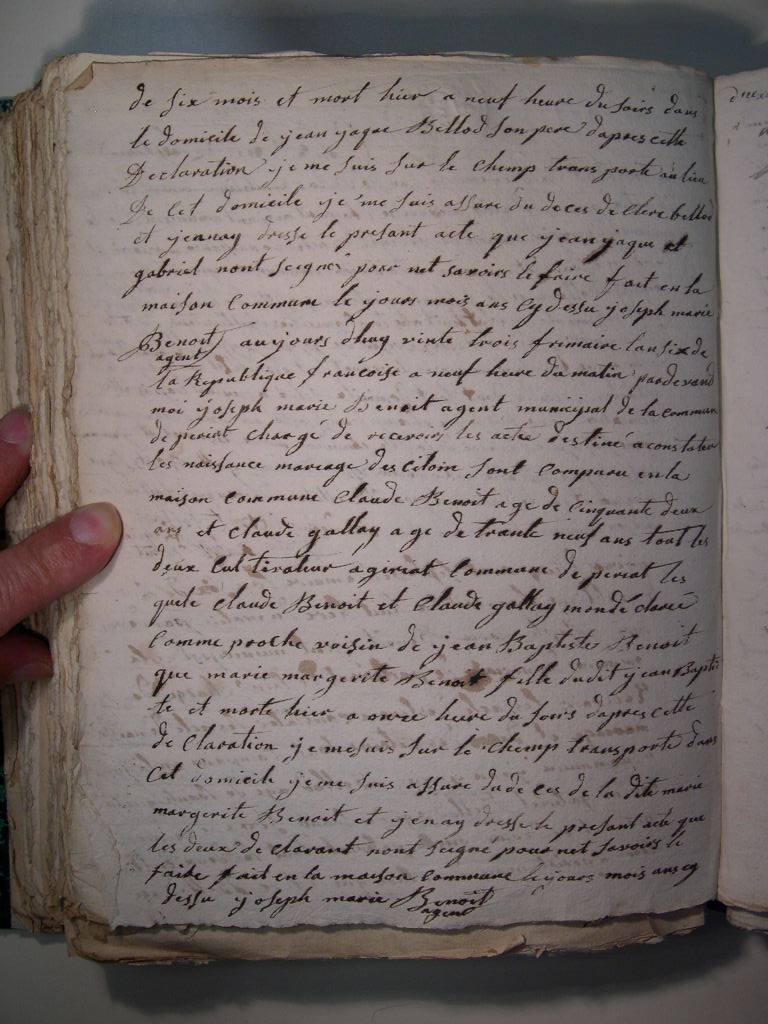 de six mois et mort hier a neuf heure du soirs dans
le domicile de jean jaque Bellod son pere dapres cette
Declaration je me suis sur le Chemp transporté au lieu
De Cet domicile je me suis assure du deces de Clere bellod
et jennay dresse le presant acte que jean jaque et
gabriel nont seigné pour net savoirs le faire fait en la
maison Commune le jours mois ans cy dessu joseph marie
Benoit aujours dhuy vinte trois frimaire lan six de
agent
la Republique francoise a neuf heure du matin pardevand
moi joseph marie Benoit agent municipal de la Commune
de periat chargé de recevoirs les acte destiné a constater
les naissance mariage des Citoin sont Comparu en la
maison Commune Claude Benoit age de Cinquante deux
ans et Claude gallay age de trante neuf ans tout les
deux Cultivateur a giriat Commune de periat les
quele Claude Benoit et Claude gallay mondé claré
Comme proche voisin de jean Baptiste Benoit
que marie margerite Benoit fille dudit jean Bapti
te et morte hier a onze heure du soirs dapres cette
de Claration je me suis sur le Chemp transporte dans
Cet domicile je me suis assure du de ces de la dite marie
margerite Benoit et jenay dresse le presant acte que
les deux de clarant nont seigné pour net savoirs le
faire fait en la maison Commune le jours mois ans cy
dessu joseph marie Benoit
agent